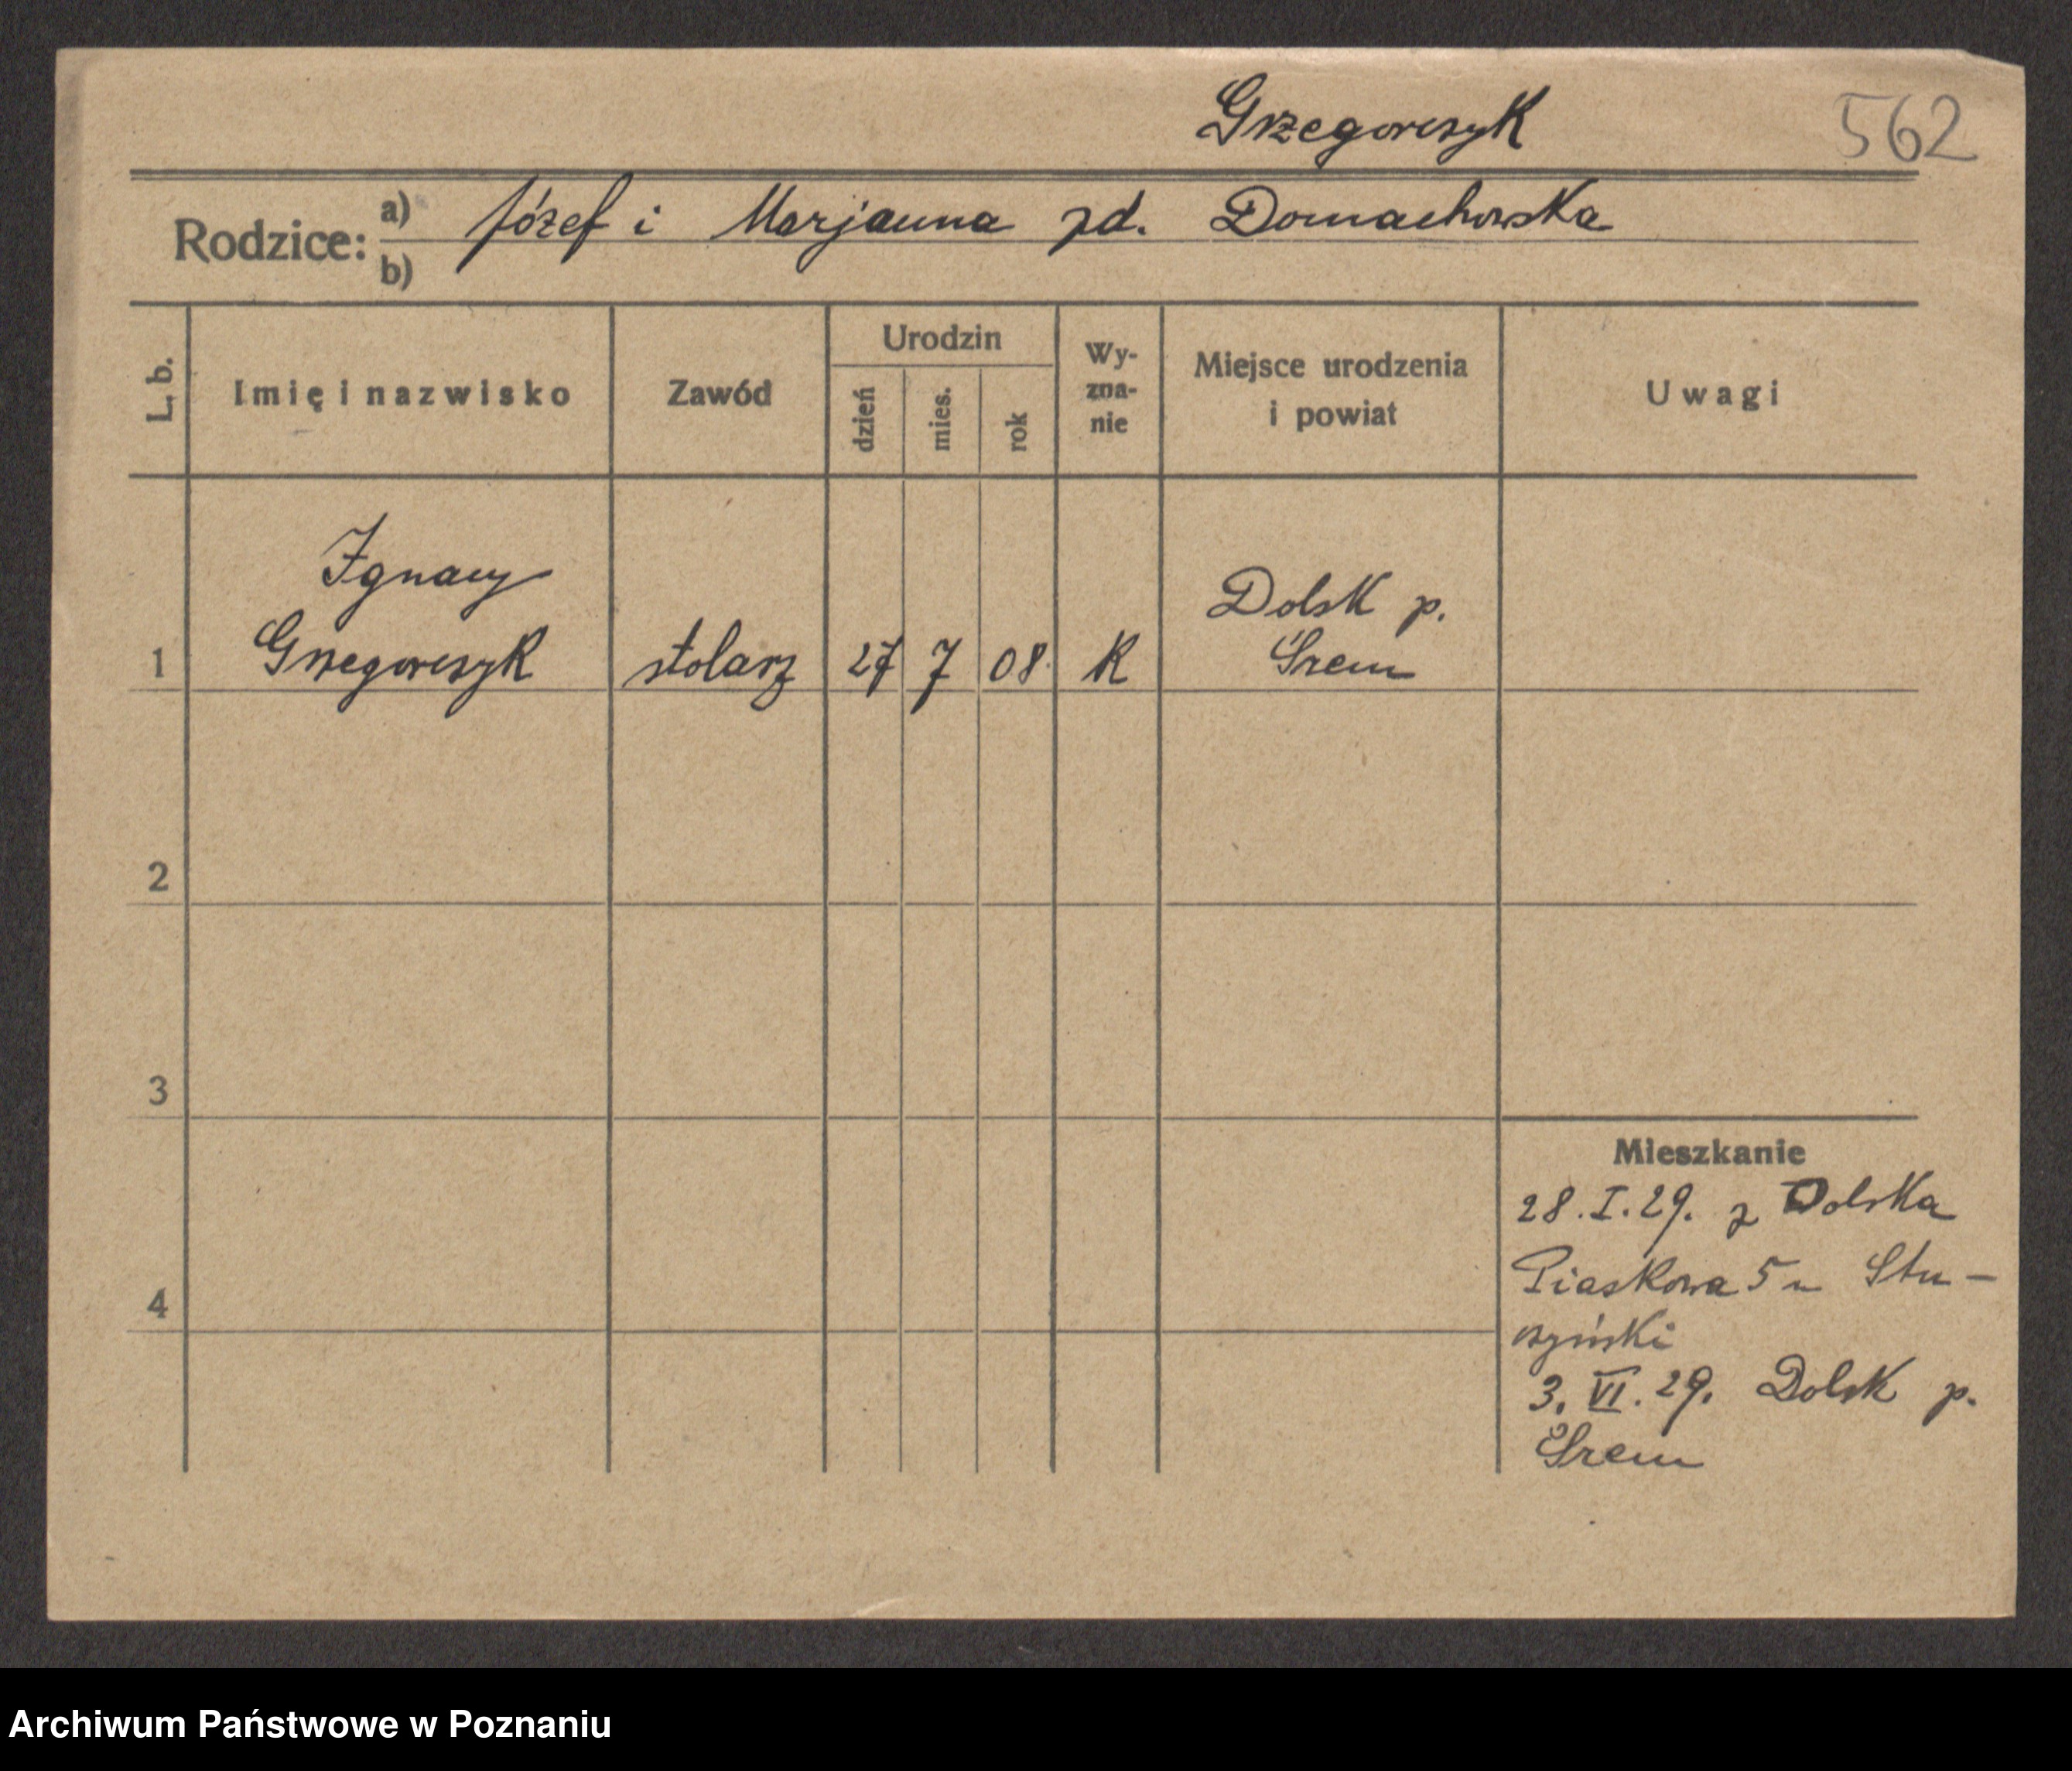 Grzegorczyk 562
Rodzice: a) Józef i Marjanna zd. Domachowska
b)
L. b. Imię i nazwisko Zawód Urodzin dzień mies. rok Wy-zna-nie Miejsce urodzenia i powiat Uwagi
Ignacy
1 Grzegorczyk stolarz 27 7 08 K Dolsk p. Śrem
2
3
4
Mieszkanie
28.I.29. z Dolska
Piaskowa 5 u Stu-
czyński
3.VI.29. Dolsk p.
Śrem
Archiwum Państwowe w Poznaniu